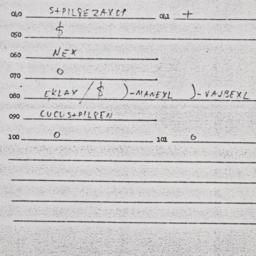 040 S+PILSEZAVCP 041 +
050 $
060 NEX
070 0
080 EKLAX/$ )-MANEXL )-VAJSEXL
090 CUCUS+PILSEN
100 0 101 0